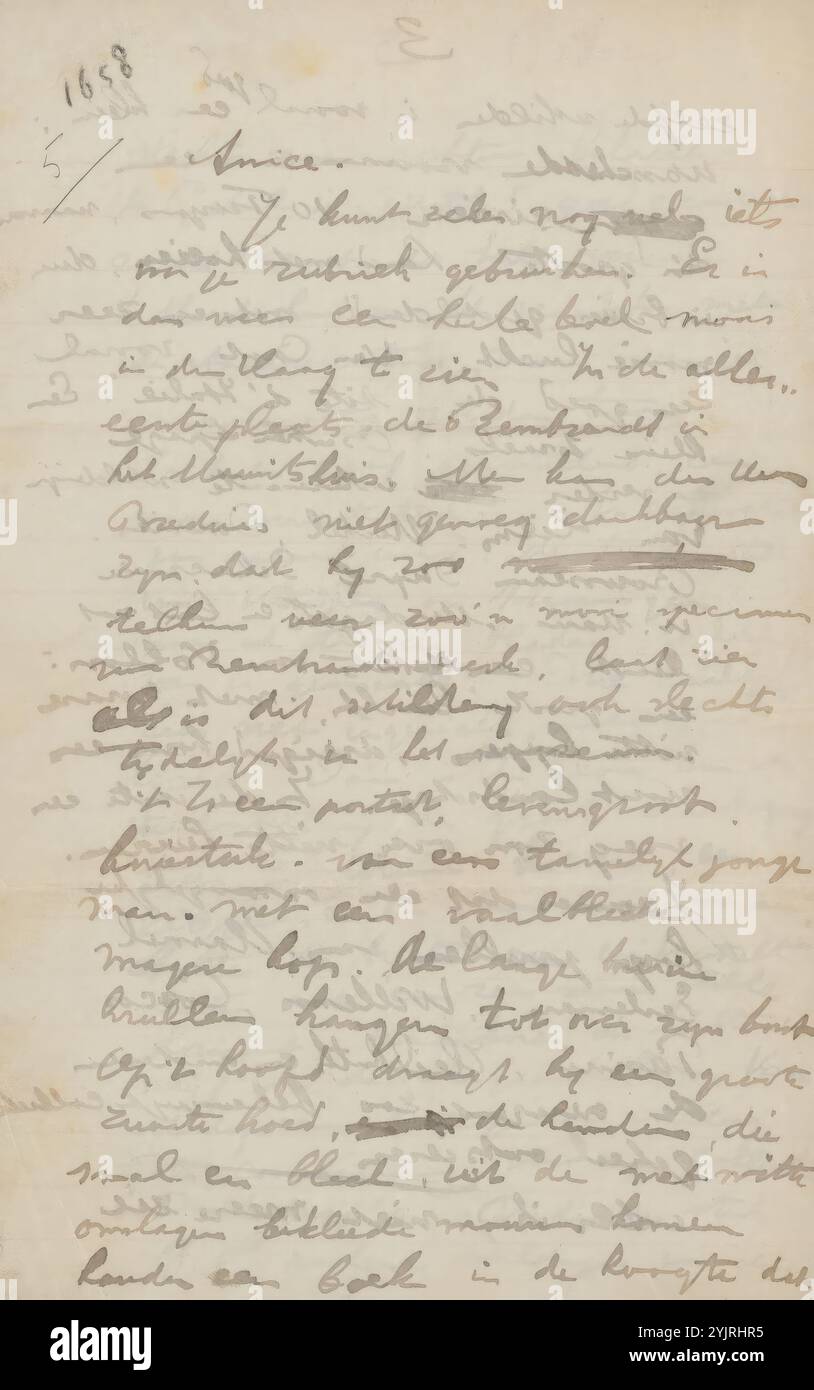 1658
5/
Amice.
Je kunt zeker nog iets
voor je rubriek gebruiken. Er is
dan weer een heele boel moois
in den Haag te zien. In de aller-
eerste plaats de Rembrandt in
het Mauritshuis. Men kan den Heer
Bredius niet genoeg dankbaar
zijn dat hij zoo
telkens weer zoo'n mooi specimen
van Rembrandts werk laat zien
al is dit schilderij ook slechts
tijdelijk in het museum.
't Is een portret, levensgroot
kniestuk. van een tamelijk jonge
man. met een vaalbleeke
magere kop. De lange bruine
krullen hangen tot over zijn borst
Op 't hoofd draagt hij een groote
zwarte hoed, de handen, die
smal en bleek, uit de met witte
omslagen bekleede mouwen komen
houden een boek in de hoogte dat
alamy
Image ID: 2YJRHR5
www.alamy.com